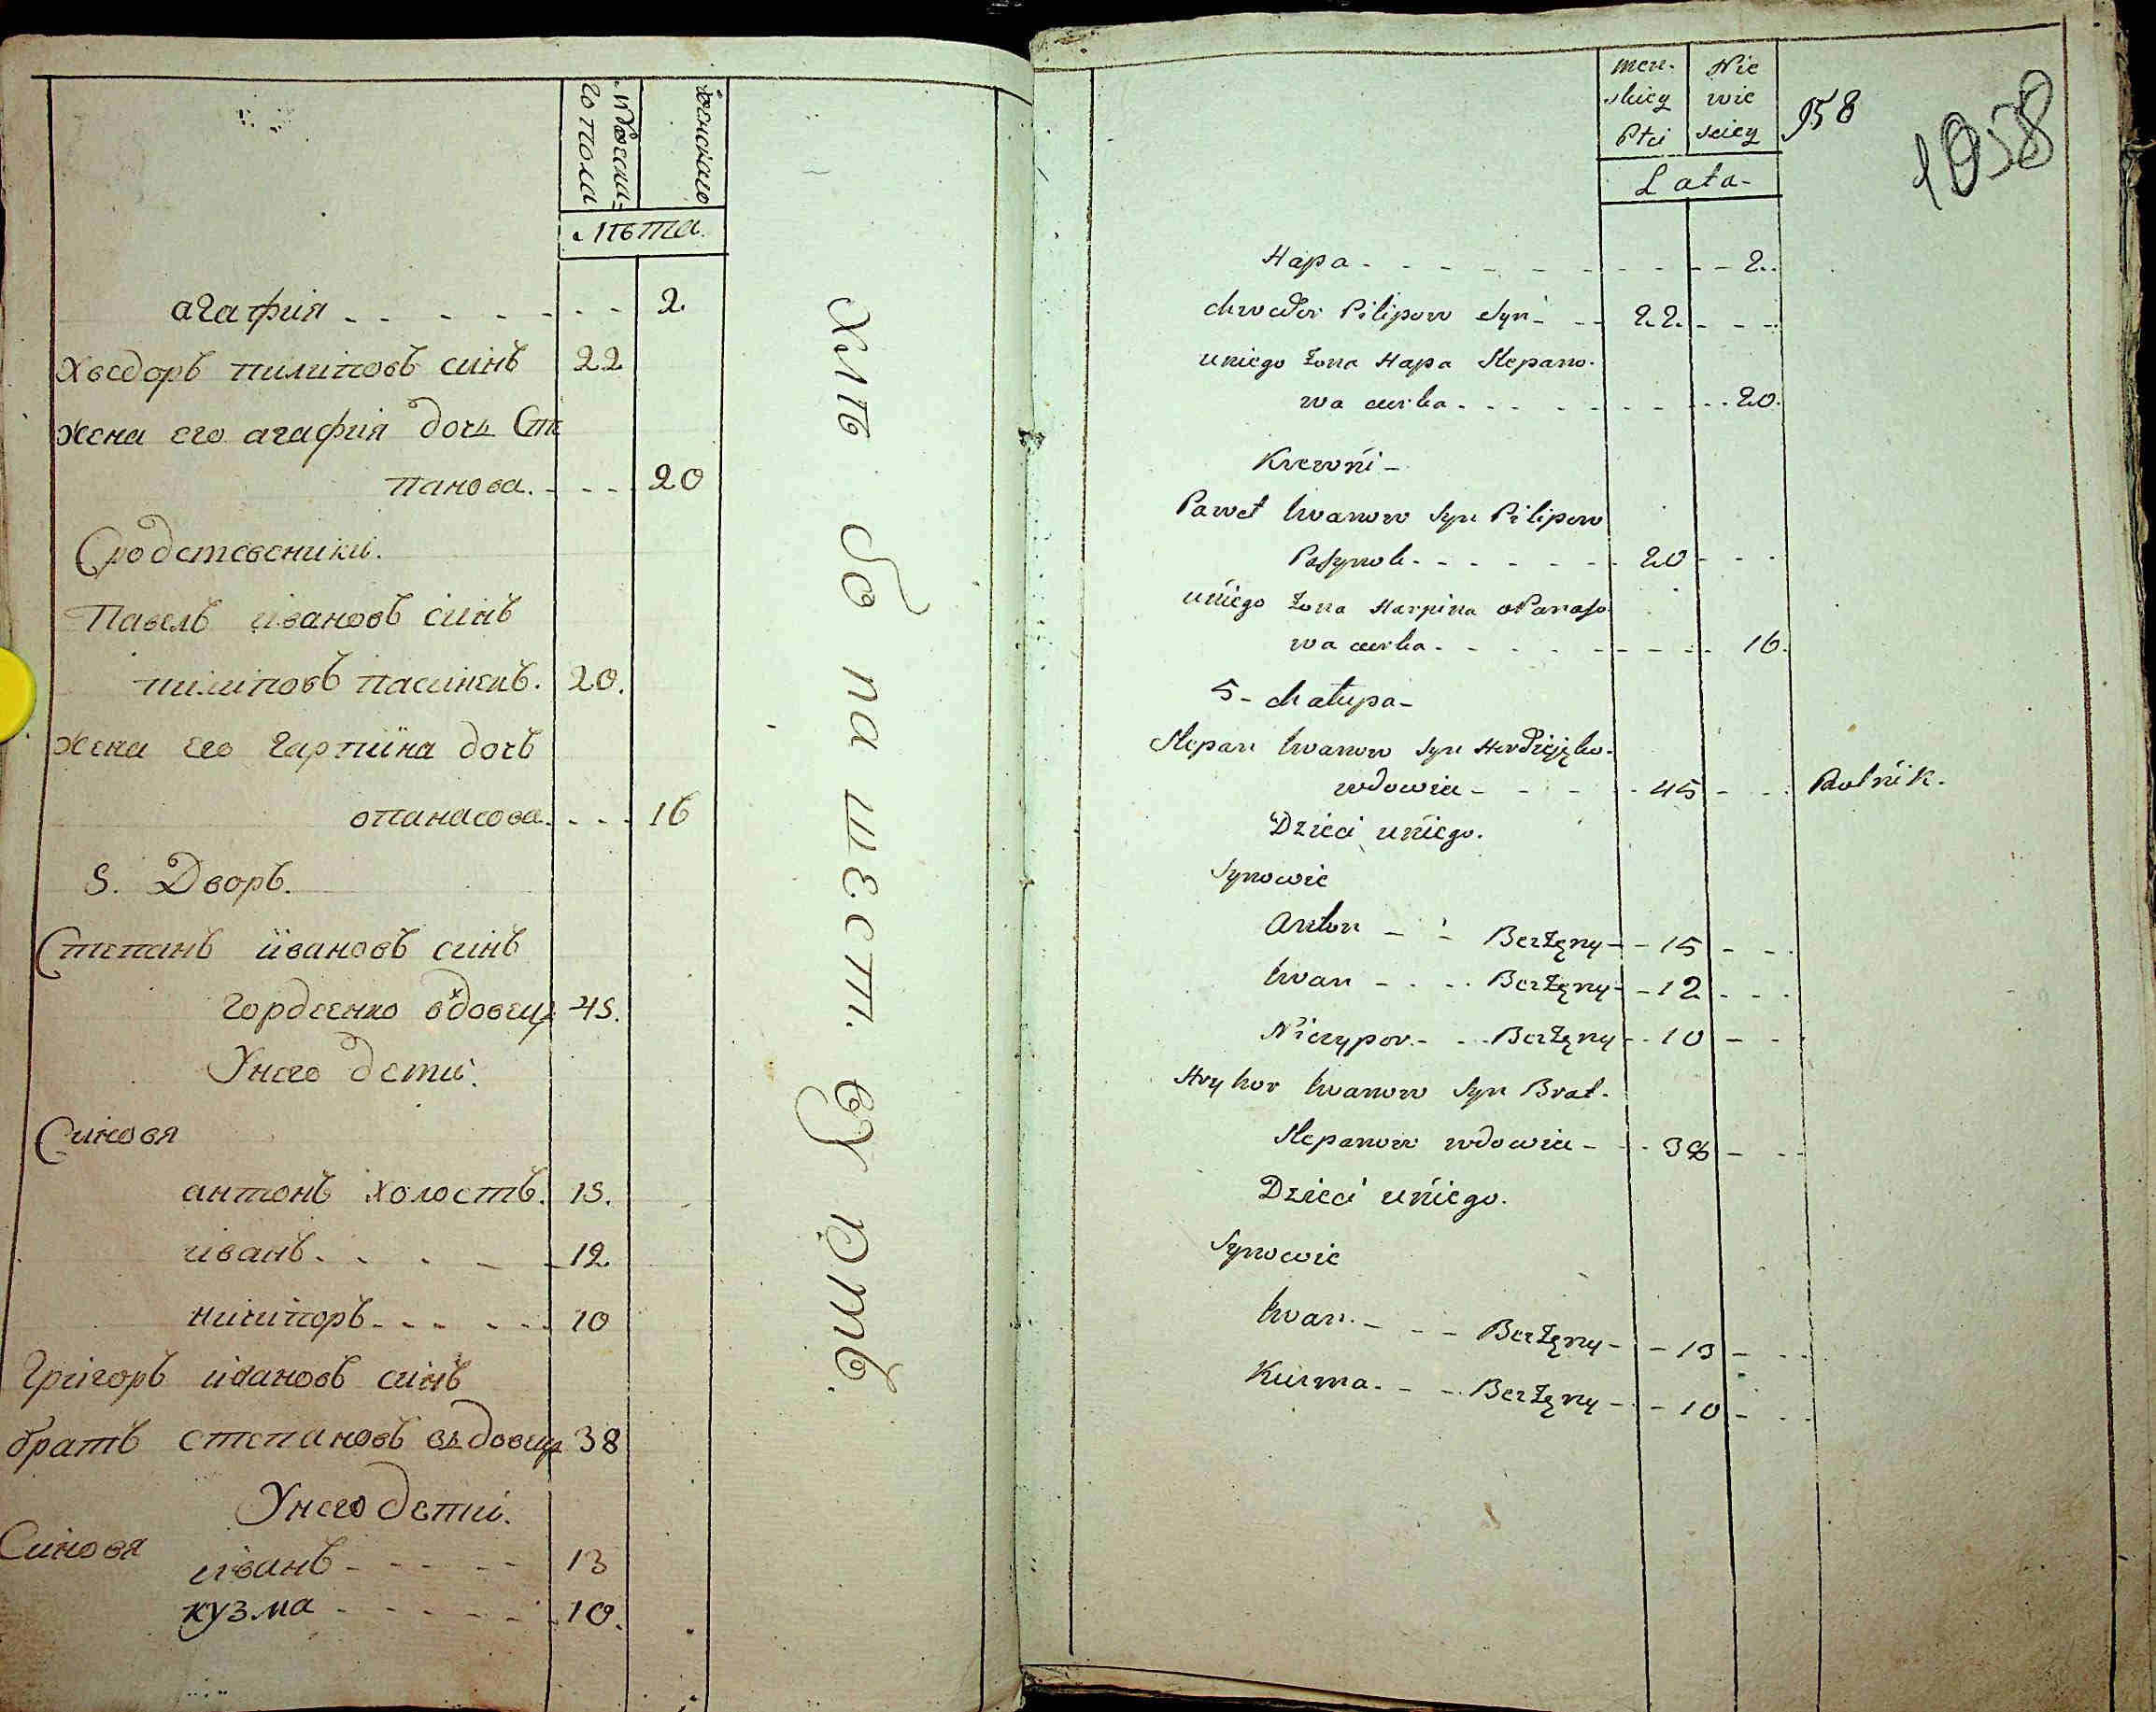 мужескаго пола
женскаго
лѣта.
агафия 2
Хведоръ пилиповъ синъ 22
жена его агафия дочь Сте
панова. 20
Сродствевники.
Павелъ ивановъ синъ
пилиповъ пасинекъ. 20.
жена его гарпина дочъ
опанасова. 16
5. Дворъ.
Степанъ ивановъ синъ
гордеенко вдовец 45.
Унего дети.
Синовя
антонъ холостъ. 15.
иванъ. 12
ничипоръ 10
Григоръ ивановъ синъ
братъ степановъ въдовец 38
Унего дети.
Синовя
иванъ 13
кузма 10.
men-
skiey
Płci
Nie
wie
sciey
958
1058
Lata-
Hapa 2.
Chwedor Pilipow Syn 22
uniego Żona Hapa Stepano-
wa curka 20.
Krewni -
Paweł Iwanow Syn Pilipow
Pasynok 20
uniego Żona Harpina oPanaso
wa curka 16.
5 - chałupa -
Stepan Iwanow Syn Hordiejęko-
wdowiec 45 Rolnik.
Dzieci uniego.
Synowie
Anton Bezżęny 15
Iwan Bezżęny 12
Niczypor Bezżęny 10
Hryhor Iwanow Syn Brat-
Stepanow wdowiec 38
Dzieci uniego.
Synowie
Iwan Bezżęny 13
Kuzma Bezżęny 10